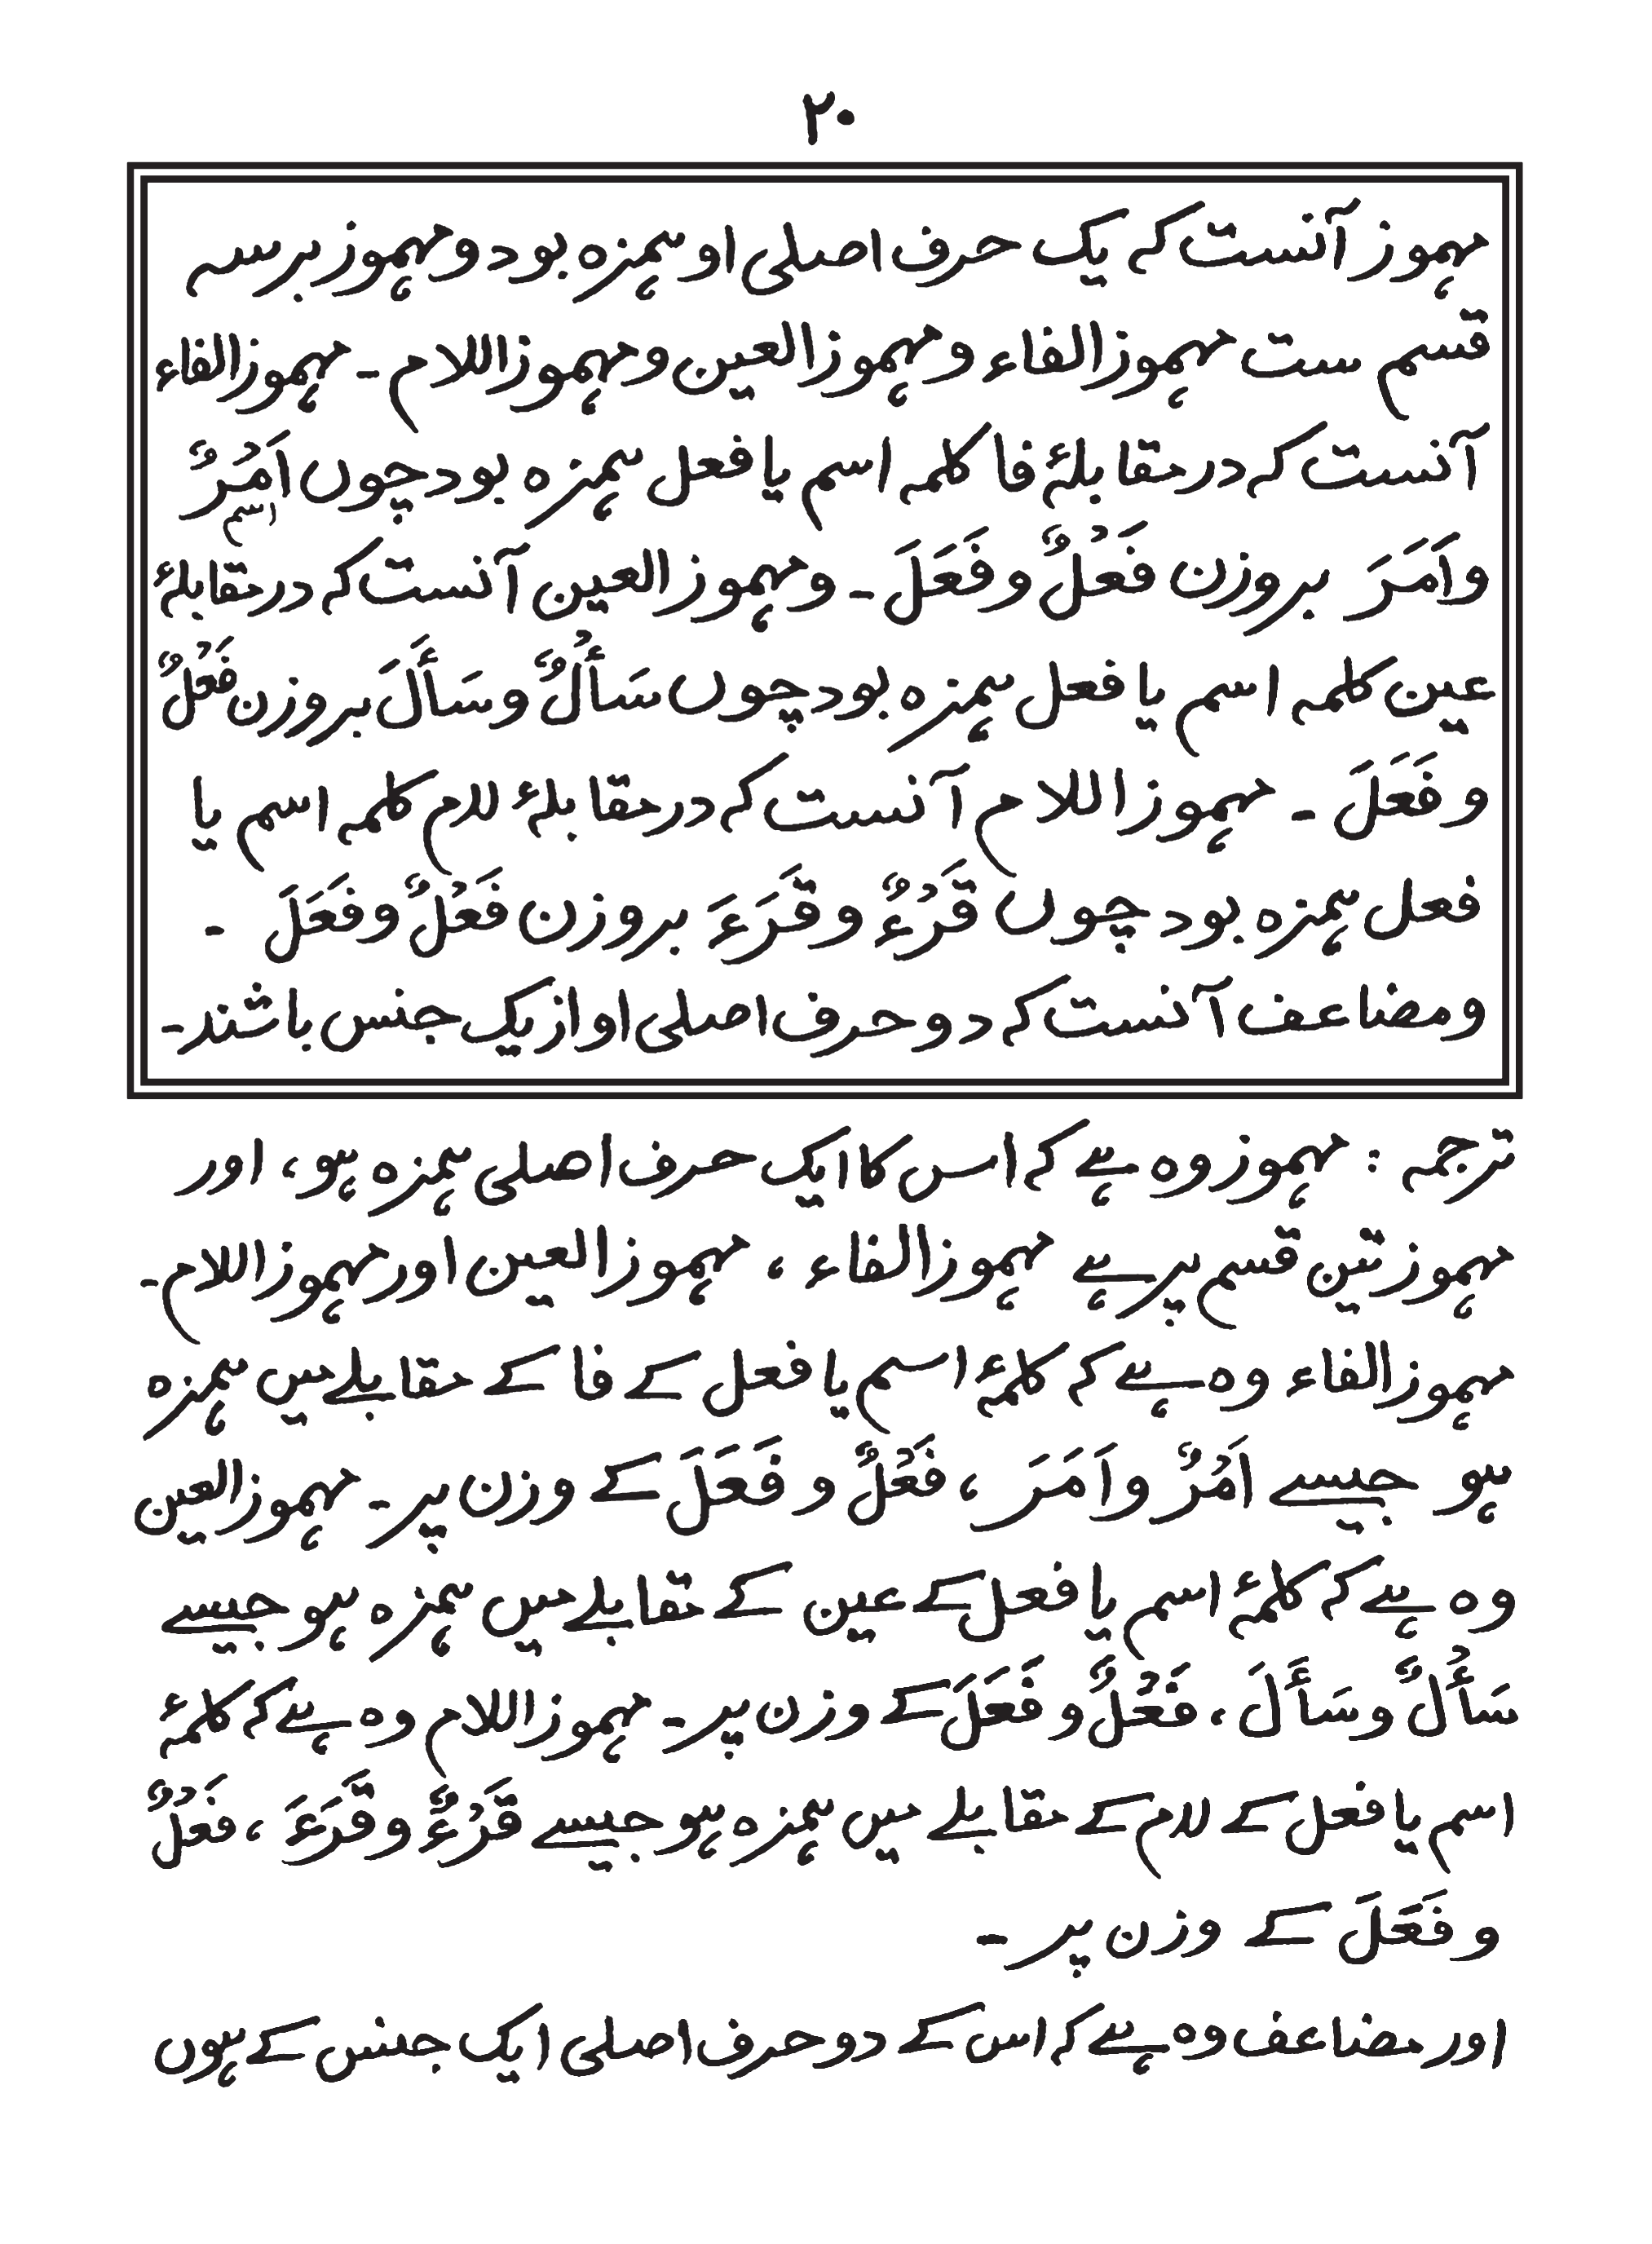 ۲۰
مہموز آنست کہ یک حرف اصلی او ہمزہ بود و مہموز بر سہ
قسم ست مہموز الفاء و مہموز العین و مہموز اللام ۔ مہموز الفاء
آنست کہ در مقابلۂ فا کلمہ اسم یا فعل ہمزہ بود چوں اَمْرٌ
اسم
و اَمَرَ بروزن فَعْلٌ و فَعَلَ ۔ و مہموز العین آنست کہ در مقابلۂ
عین کلمہ اسم یا فعل ہمزہ بود چوں سَأْلٌ و سَأَلَ بروزن فَعْلٌ
و فَعَلَ ۔ مہموز اللام آنست کہ در مقابلۂ لام کلمہ اسم یا
فعل ہمزہ بود چوں قَرْءٌ و قَرَءَ بروزن فَعْلٌ و فَعَلَ ۔
و مضاعف آنست کہ دو حرف اصلی او از یک جنس باشند ۔
ترجمہ : مہموز وہ ہے کہ اس کا ایک حرف اصلی ہمزہ ہو، اور
مہموز تین قسم پر ہے مہموز الفاء ، مہموز العین اور مہموز اللام ۔
مہموز الفاء وہ ہے کہ کلمۂ اسم یا فعل کے فا کے مقابلے میں ہمزہ
ہو جیسے اَمْرٌ و اَمَرَ ، فَعْلٌ و فَعَلَ کے وزن پر ۔ مہموز العین
وہ ہے کہ کلمۂ اسم یا فعل کے عین کے مقابلے میں ہمزہ ہو جیسے
سَأْلٌ و سَأَلَ ، فَعْلٌ و فَعَلَ کے وزن پر ۔ مہموز اللام وہ ہے کہ کلمۂ
اسم یا فعل کے لام کے مقابلے میں ہمزہ ہو جیسے قَرْءٌ و قَرَءَ ، فَعْلٌ
و فَعَلَ کے وزن پر ۔
اور مضاعف وہ ہے کہ اس کے دو حرف اصلی ایک جنس کے ہوں